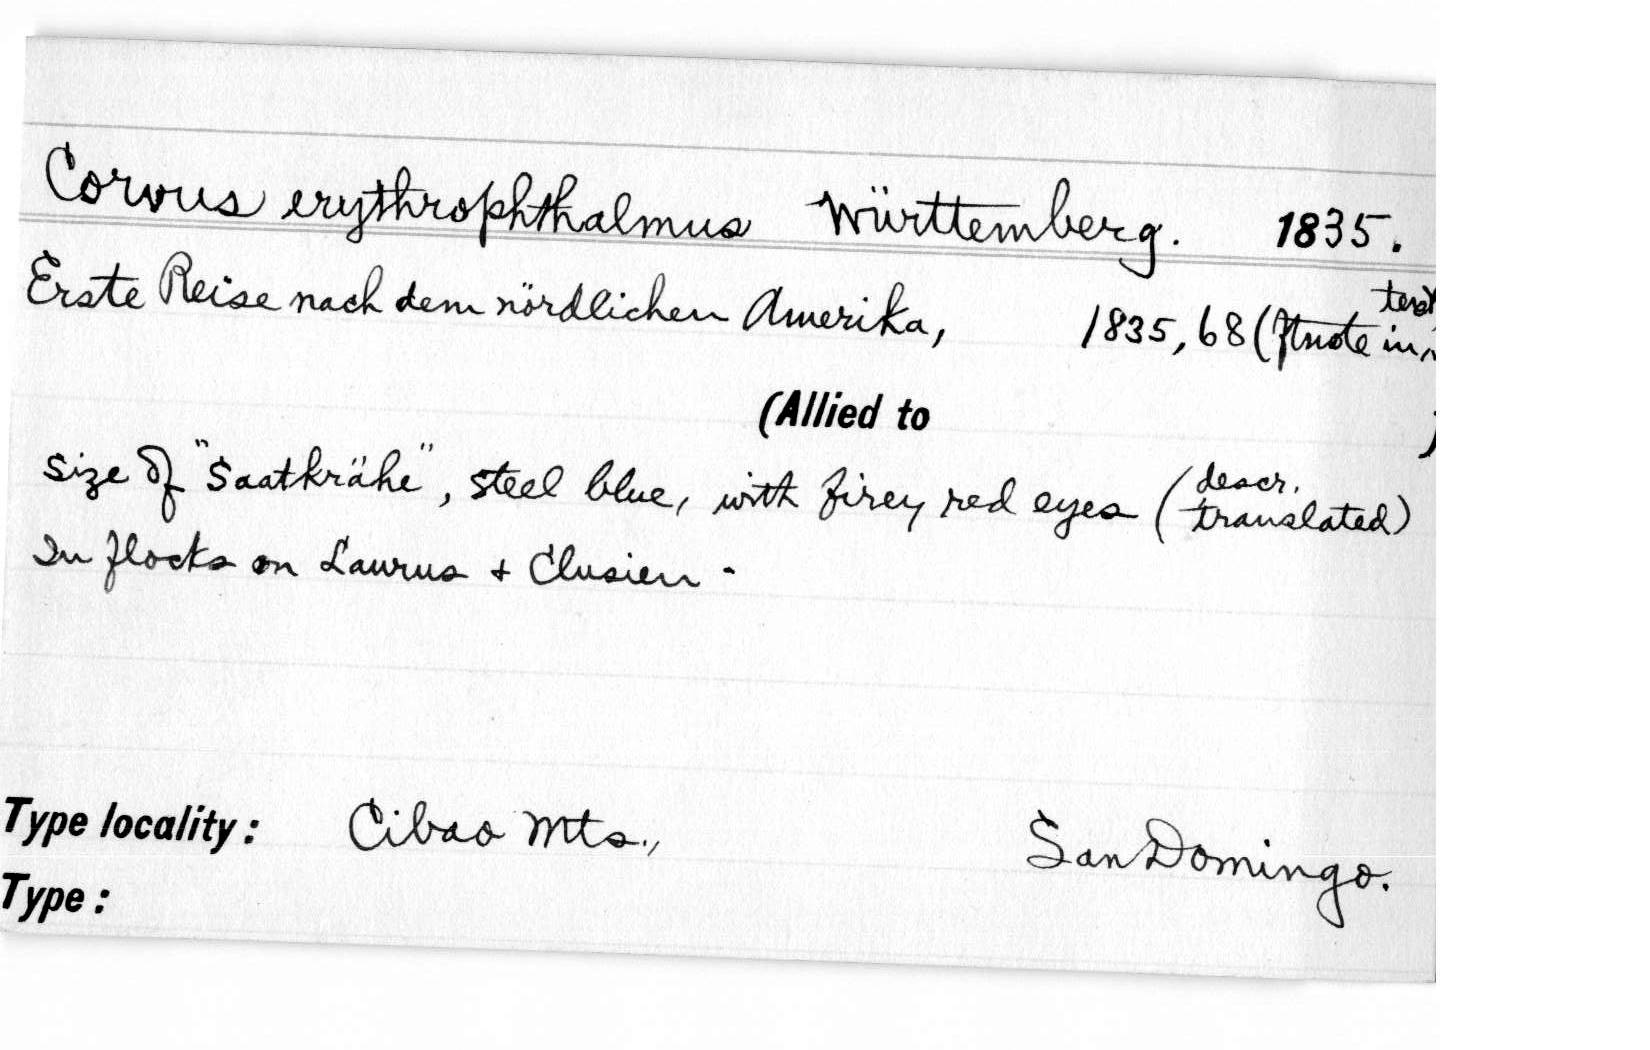 Corvus erythrophthalmus Württemberg. 1835.
Erste Reise nach dem nördlichen Amerika, 1835, 68 (ftnote in text
(Allied to )
size of "Saatkrähe", steel blue, with firey red eyes (descr. translated)
In flocks on Laurus + Clusien -
Type locality: Cibao Mts., San Domingo.
Type: